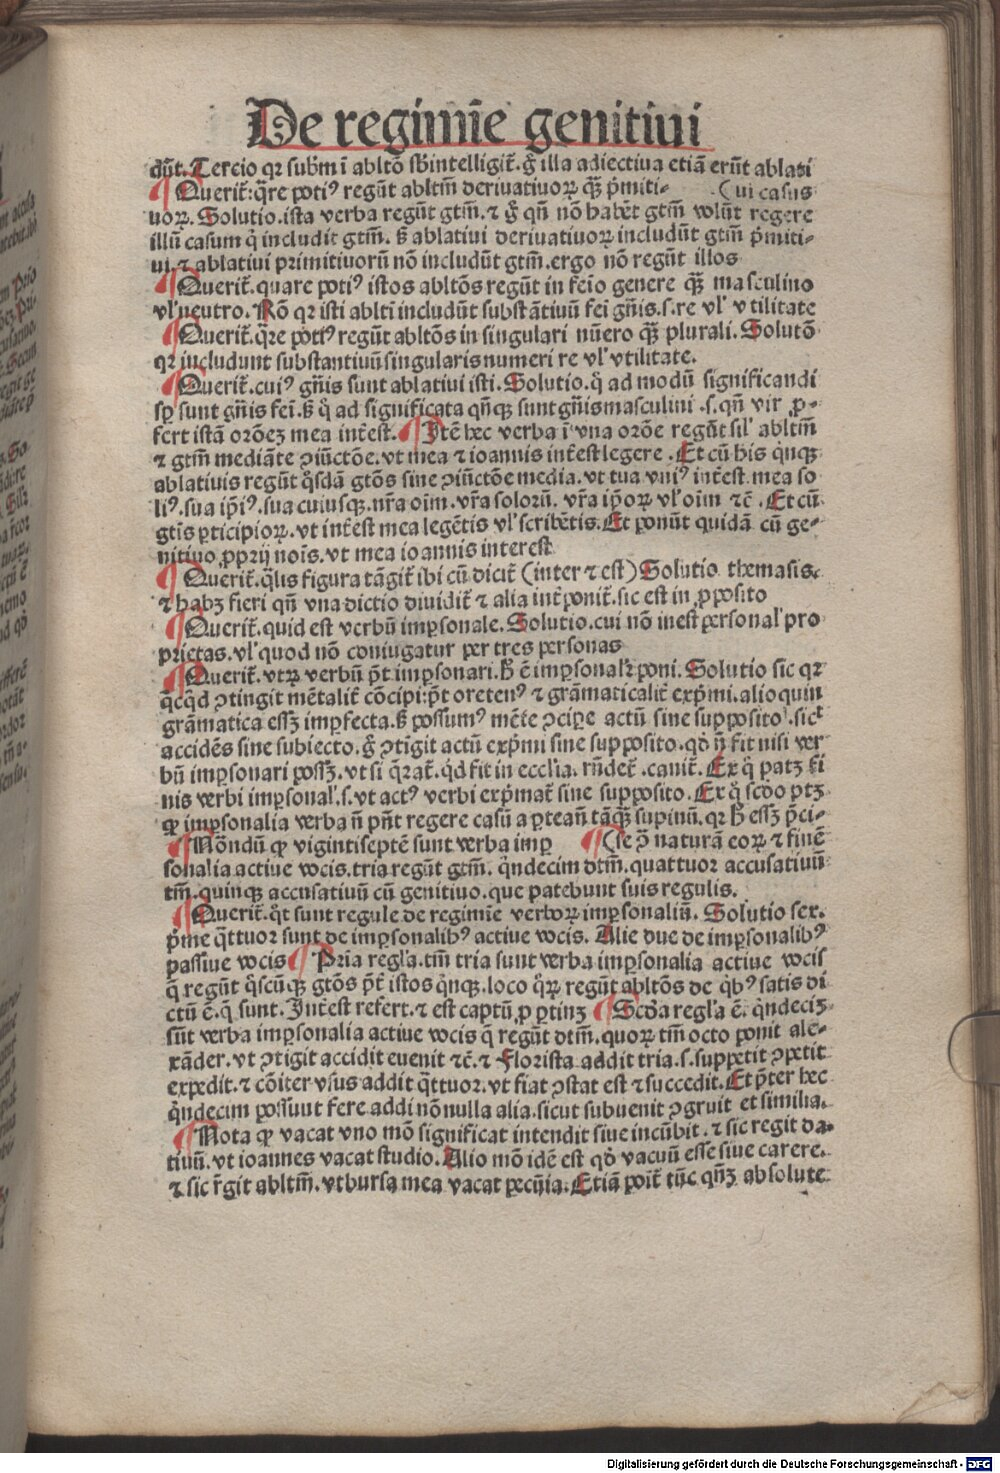 De regimīe genitiui
dūt. Tercio qꝛ subm̄ ī abltō sb̄intelligit̄. g̊ illa adiectiua etiā erūt ablati
¶ Querit̄: q̄re poti⁹ regūt abltm̄ deriuatiuoꝝ q̄ꝫ p̄miti⸗ (ui casus
uoꝝ. Solutio. ista verba regūt gtm̄. ⁊ g̊ qn̄ nō habēt gtm̄ volūt regere
illū casum q̇ includit gtm̄. ꝫ ablatiui deriuatiuoꝝ includūt gtm̄ p̄miti⸗
ui. ⁊ ablatiui primitiuorū nō includūt gtm̄. ergo nō regūt illos
¶ Querit̄. quare poti⁹ istos abltōs regūt in feīo genere q̄ꝫ masculino
vl' neutro. Rō qꝛ isti abltī includūt substātiuū feī gn̄is. s. re vl' vtilitate
¶ Querit̄. q̄re poti⁹ regūt abltōs in singulari nūero q̄ꝫ plurali. Solutō
qꝛ includunt substantiuū singularis numeri re vl' vtilitate.
¶ Querit̄. cui⁹ gn̄is sunt ablatiui isti. Solutio. q̇ ad modū significandi
sꝑ sunt gn̄is feī. ꝫ q̇ ad significata qn̄qꝫ sunt gn̄is masculini .s. qn̄ vir ꝓ⸗
fert istā orōeꝫ mea int̄est. ¶ Itē hec verba ī vna orōe regūt sil' abltm̄
⁊ gtm̄ mediāte ꝯiūctōe. vt mea ⁊ ioannis int̄est legere . Et cū his q̇nqꝫ
ablatiuis regūt q̇sdā gtōs sine ꝯiūctōe media. vt tua vni⁹ int̄est. mea so
li⁹. sua ip̄i⁹. sua cuiusqꝫ. nr̄a oīm. vr̄a solorū. vr̄a ip̄oꝝ vl' oīm ⁊c̄ . Et cū
gtīs ꝑticipioꝝ. vt int̄est mea legētis vl' scribētis. Et ponūt quidā cū ge⸗
nitiuo ꝓprij noīs. vt mea ioannis interest
¶ Querit̄. q̄lis figura tāgit̄ ibi cū dicit̄ (inter ⁊ est) Solutio themasis.
⁊ habꝫ fieri qn̄ vna dictio diuidit̄ ⁊ alia int̄ponit̄. sic est in ꝓposito
¶ Querit̄. quid est verbū imꝑsonale. Solutio. cui nō inest ꝑsonal' pro
prietas. vl' quod nō coniugatur per tres personas
¶ Querit̄. vtꝝ verbū p̄t imꝑsonari. ꝫ ē imꝑsonalr̄ poni. Solutio sic qꝛ
q̇cq̇d ꝯtingit mētalit̄ cōcipi: p̄t oreten⁹ ⁊ grāmaticalit̄ exp̄mi. alioquin
grāmatica essꝫ imꝑfecta. ꝫ possum⁹ mēte ꝯciꝑe actū sine supposito . sic̄
accidēs sine subiecto. g̊ ꝯtīgit actū exp̄mi sine supposito. qd̄ n̄ fit nisi ver
bū imꝑsonari possꝫ. vt si q̄rat̄. q̇d fit in eccl'ia. rn̄det̄ . canit̄. Ex q̇ patꝫ fi
nis verbi imꝑsonal'. s. vt act⁹ verbi exp̄mat̄ sine supposito. Ex q̇ scdo ptꝫ
ꝙ imꝑsonalia verba n̄ pn̄t regere casū a ꝑte an̄ tāq̄ꝫ supinū. qꝛ ꝫ essꝫ p̄ci⸗
¶ Nōndū ꝙ vigintiseptē sunt verba imꝑ ¶ (se ꝯ̄ naturā eoꝝ ⁊ finē
sonalia actiue vocis. tria regūt gtm̄. q̇ndecim dtm̄. quattuor accusatiuū
tm̄. quinqꝫ accusatiuū cū genitiuo. que patebunt suis regulis.
¶ Querit̄. q̇t sunt regule de regimīe verboꝝ imꝑsonaliū. Solutio sex.
p̄me q̄ttuor sunt de imꝑsonalib⁹ actiue vocis. Alie due de imꝑsonalib⁹
passiue vocis ¶ Pr̄ia regl'a. tm̄ tria sunt verba imꝑsonalia actiue vocis
q̄ regūt q̇scūqꝫ gtōs p̄t̄ istos q̇nqꝫ. loco q̇ꝝ regūt abltōs de qb⁹ satis di
ctū ē. q̄ sunt. Int̄est refert. ⁊ est captū ꝓ ꝑtinꝫ ¶ Scd̄a regl'a ē. q̇ndeciꝫ
sūt verba imꝑsonalia actiue vocis q̄ regūt dtm̄. quoꝝ tm̄ octo ponit ale⸗
xāder. vt ꝯtigit accidit euenit ⁊c̄. ⁊ Florista addit tria. s. suppetit ꝯpetit
expedit. ⁊ cōiter vsus addit q̄ttuor. vt fiat ꝯstat est ⁊ succedit. Et p̄ter hec
q̇ndecim possunt fere addi nōnulla alia. sicut subuenit ꝯgruit et similia.
¶ Nota ꝙ vacat vno mō significat intendit siue incūbit. ⁊ sic regit da⸗
tiuū. vt ioannes vacat studio. Alio mō idē est qd̄ vacuū esse siue carere.
⁊ sic r̄git abltm̄. vt bursa mea vacat pecūia. Etiā poīt̄ tūc qn̄qꝫ absolute
Digitalisierung gefördert durch die Deutsche Forschungsgemeinschaft - DFG